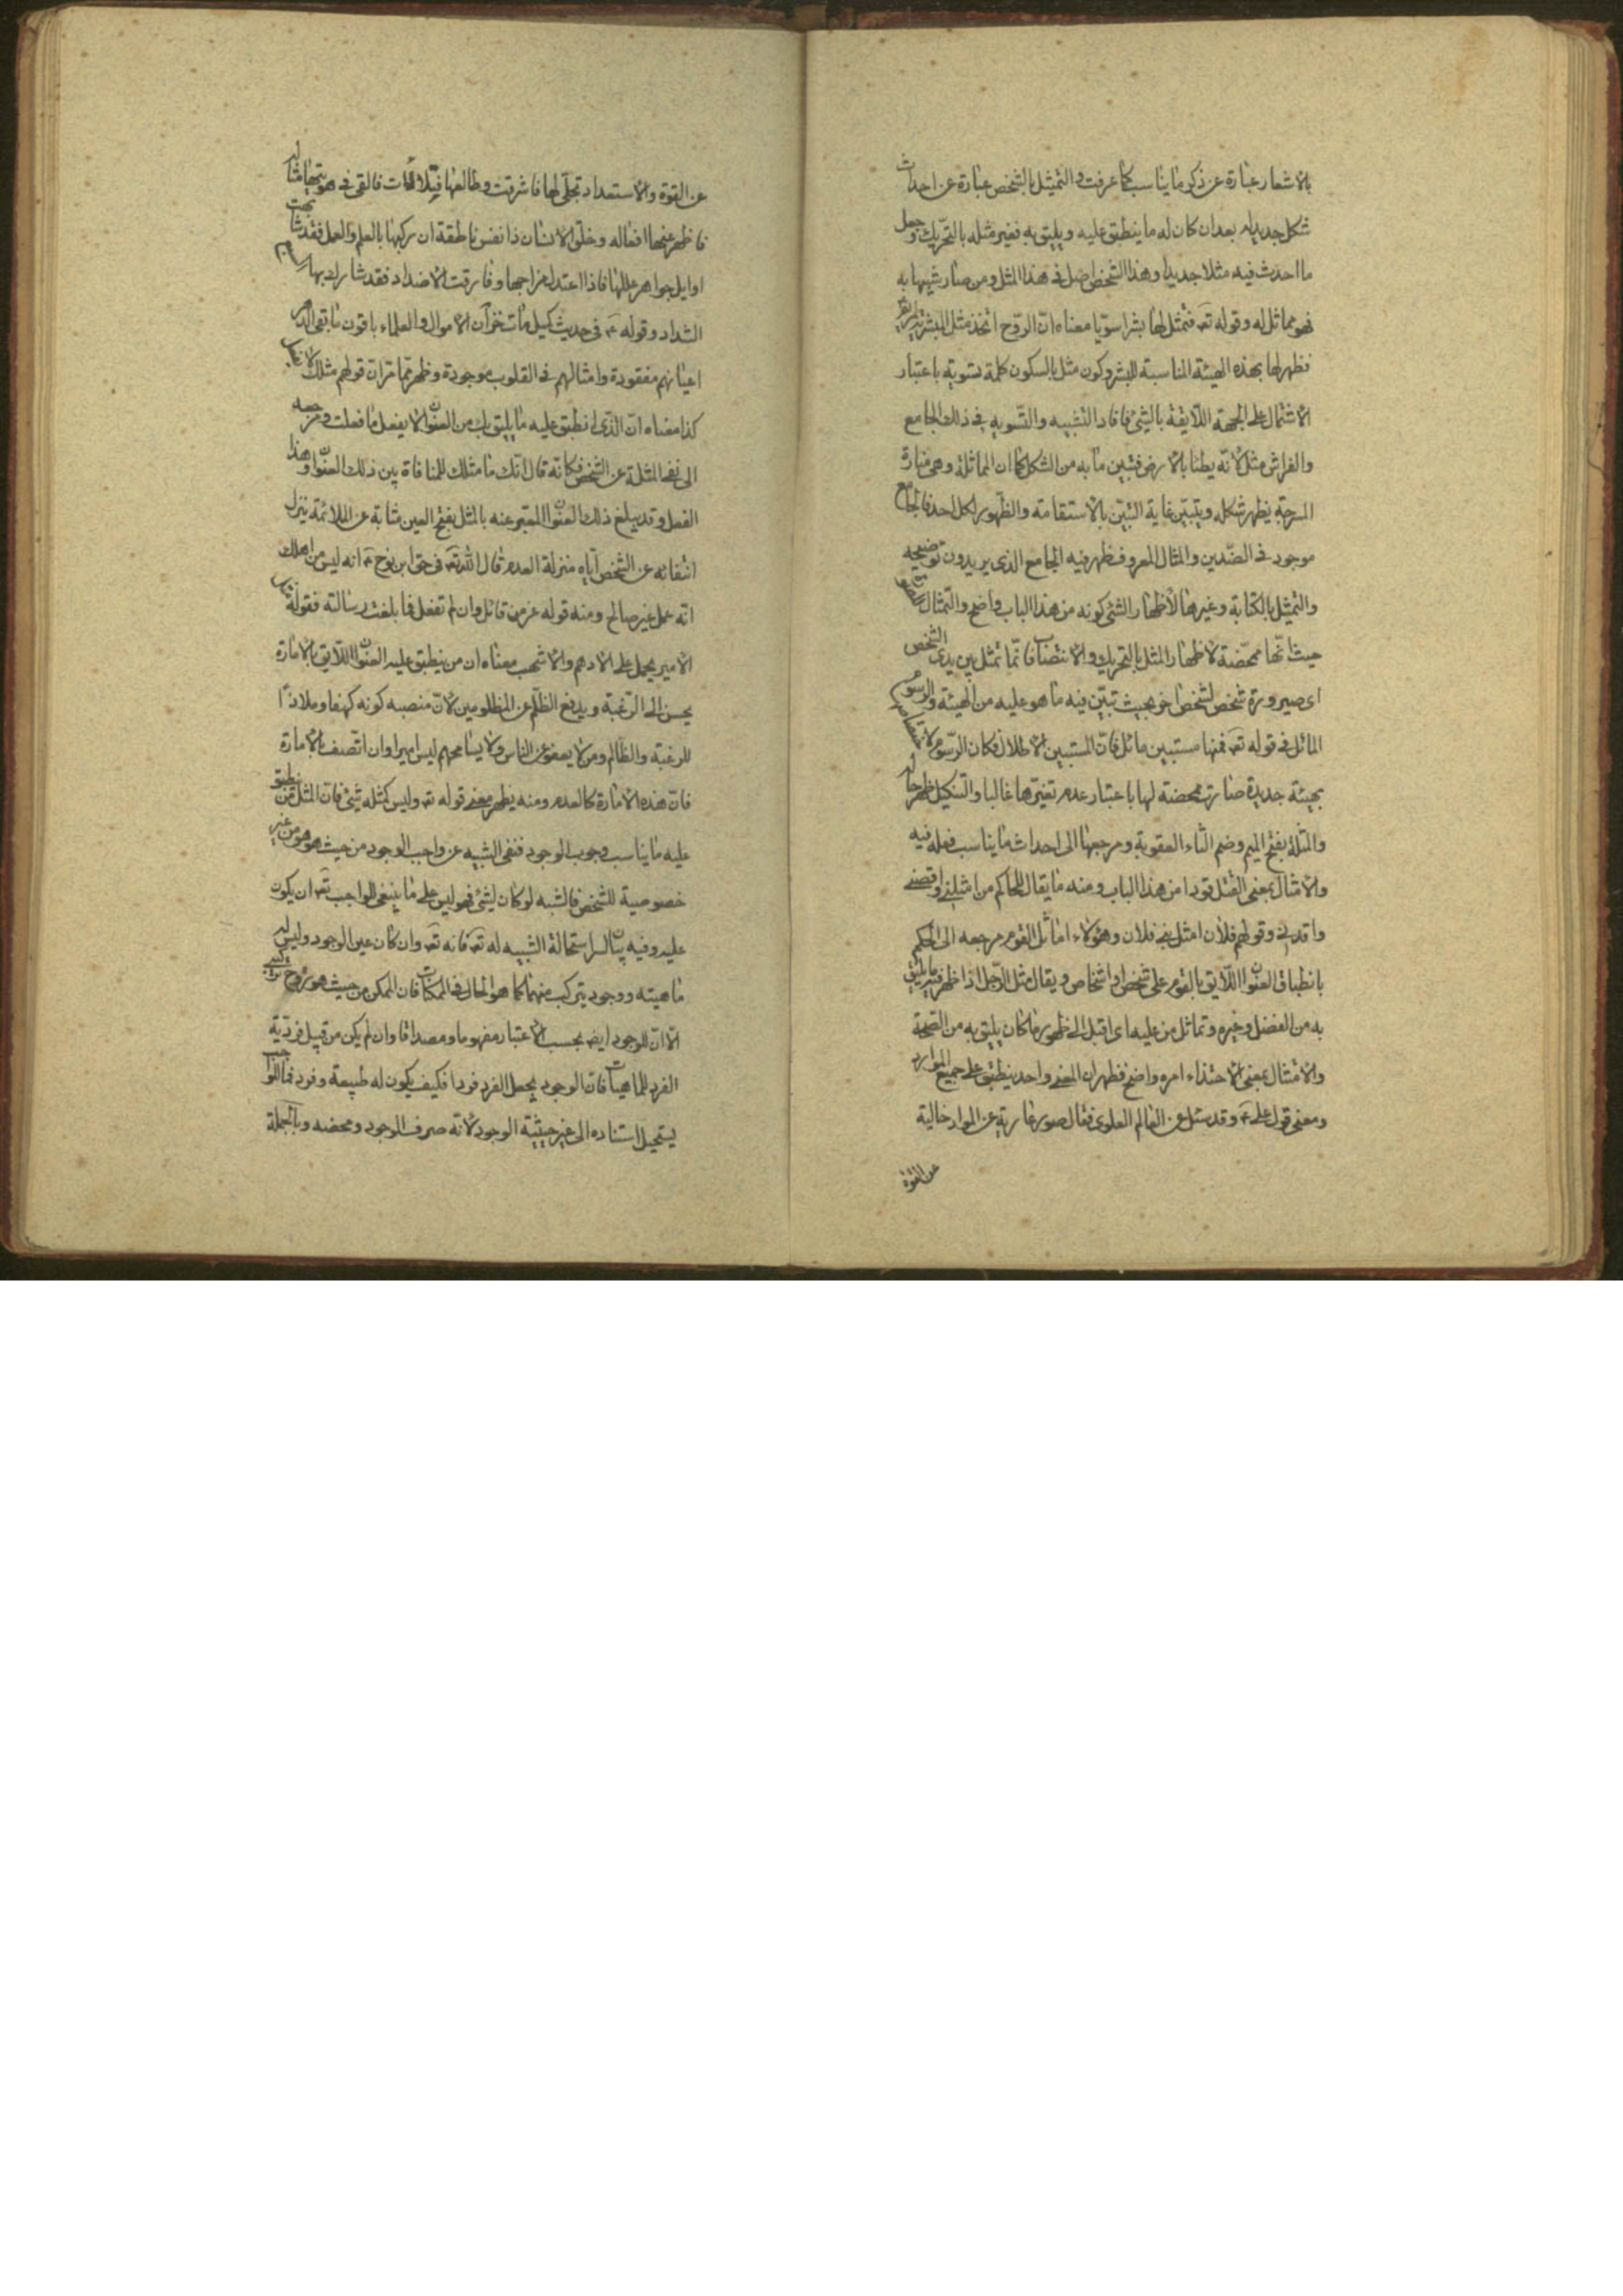 بالاشعار عبارة عن ذكر ما يناسب كما عرفت والتمثيل بالشخص عبارة عن احداث
شكل جديد له بعد ان كان له ما ينطبق عليه ويليق به فغير مثله بالتحريك وجعل
ما احدث فيه مثلا جديدا وهذا الشخص اصل في هذا المثل ومن صار شبيها به
فهو مماثل له وقوله تعـ فتمثل لها بشرا سويا معناه انّ الروح اتخذ مثل البشر
فظهر لها بهذه الهيئة المناسبة للبشر وكون مثل بالسكون كلمة تسوية باعتبار
الاشتمال على الجهة اللايقة بالشئ فافاد التشبيه والتسوية في ذلك الجامع
والفراش مثل لانّه يطنا بالارض فتبين ما به من الشكل كما ان الماثلة وهي منارة
المسرجة يظهر شكله ويتبيّن غاية التبيّن بالاستقامة والظهور لكل احد فالجامع
موجود في الضدين والمثال المعروف ظهر فيه الجامع الذي يريدون توضيحه
والتمثيل بالكتابة وغيرها لاظهار الشئ كونه من هذا الباب واضح والتمثال
حيث انّها ممحضة لاظهار المثل بالتحريك والانتصاب فانّما تمثل بين يدي الشخص
اى صيرورة شخص لشخص اخر بحيث تبيّن فيه ما هو عليه من الهيئة والرسوم
الماثل في قوله تعـ فمنها مستبين ماثل فانّ المستبين الاطلال فكان الرسوم
بهيئة جديدة صارت ممحضة لها باعتبار عدم تغيّرها غالبا والتنكيل ظهر حاله
والمثلة بفتح الميم وضم الثاء العقوبة ومرجعها الى احداث ما يناسب فعله فيه
والامثال بمعنى القتل قودا من هذا الباب ومنه ما يقال للحاكم من امثلني واقصني
واقدني وقولهم فلان امثل بني فلان وهؤلاء اماثل القوم مرجعه الى الحكم
بانطباق العنوان اللايق بالقوم على شخص او اشخاص ويقال مثل الرجل اذا ظهر فيه ما يليق
به من الفضل وغيره وتماثل من عليه اى اقبل الى ظهور ما كان يليق به من الصحة
والامتثال بمعنى الاحتذاء امره واضح فظهر ان المعنى واحد ينطبق على جميع الموارد
ومعنى قول على ع وقد سئل عن العالم العلوى فقال صور عارية عن المواد خالية
عن القوة
عن القوة والاستعداد تجلّى لها فاشرقت وطالعها فتلألأت فالقى في هويتها مثاله
فاظهر عنها افعاله وخلق الانسان ذا نفس ناطقة ان زكيها بالعلم والعمل فقد شابهت
اوايل جواهر عللها فاذا اعتدل مزاجها وفارقت الاضداد فقد شارك بها السبع
الشداد وقوله ع في حديث كميل مات خزان الاموال والعلماء باقون ما بقى الدهر
اعيانهم مفقودة وامثالهم في القلوب موجودة وظهر ممّا مرّ ان قولهم مثلك
كذا معناه انّ الذّى انطبق عليه ما يليق بك من العنوان لا يفعل ما فعلت ومرجعه
الى نفى المثلة عن الشخص فكانّه قال انّك ما مثلك للمنافاة بين ذلك العنوان وهذا
الفعل وقد يبلغ ذلك العنوان المعبر عنه بالمثل بفتح العين مثابة عن الملائمة ينزل
انتفائه عن الشخص اياه منزلة العدم قال الله تعـ في حق ابن نوح ع انه ليس من اهلك
انّه عمل غير صالح ومنه قوله عز من قائل وان لم تفعل فما بلغت رسالته فقولهم
الامير يحمل على الادهم والاشهب معناه ان من ينطبق عليه العنوان اللايق بالامارة
يحسن الى الرعية ويدفع الظلم عن المظلومين لانّ منصبه كونه كهفا وملاذًا
للرعية والظالم ومن لا يعفو عن الناس ولا يسامحهم ليس اميرا وان اتّصف بالامارة
فانّ هذه الامارة كالعدم ومنه يظهر معنى قوله تعـ وليس كمثله شئ فانّ المثل من ينطبق
عليه ما يناسب وجوب الوجود فنفى الشبيه عن واجب الوجود من حيث هو هو من غير
خصوصية للشخص فالشبه لو كان لشئ فهو ليس على ما ينبغى للواجب تعـ ان يكون
عليه وفيه بيان لسر استحالة الشبيه له تعـ فانه تعـ وان كان عين الوجود وليس له
ماهيته ووجود يتركب منهما كما هو الحال في الممكنات فان الممكن من حيث هو زوج تركيبي
الّا انّ للوجود ايضـ بحسب الاعتبار مفهوما ومصداقا وان لم يكن من قبيل فردّية
الفرد للماهيات فانّ الوجود يجعل الفرد فردا فكيف يكون له طبيعة وفرد فما للواجب
يستحيل استناده الى غير حيثية الوجود لانّه صرف الوجود ومحضه وبالجملة